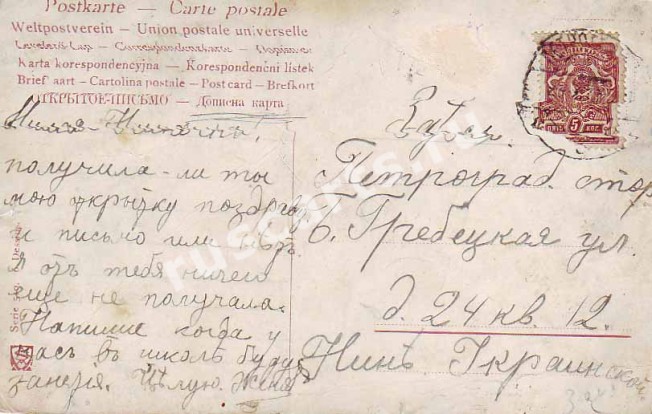 Postkarte — Carte postale
Weltpostverein — Union postale universelle
Karta korespondencyjna — Korespondenční lístek
Brief aart — Cartolina postale — Post card — Brefkort
ОТКРЫТОЕ-ПИСЬМО — Дописна карта
получила-ли ты
мою открытку поздра
и письмо или нѣтъ
Я отъ тебя ничего
еще не получала.
Напиши когда у
васъ въ школѣ буд
занятія. Цѣлую Женя
Петроград. стор
Б. Гребецкая ул.
д. 24 кв. 12.
Нинѣ Украинской
5 КОП.
Serie
ruscards.ru